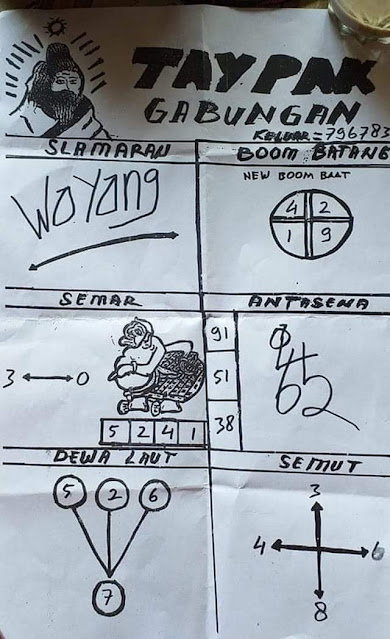 TAYPAK
GABUNGAN
KELUAR=796783
SLAMARAN
WaYang
BOOM BATANG
NEW BOOM BAAT
4 2
1 9
SEMAR
3 0
5 2 4 1
91
51
38
ANTASENA
652
DEWA LAUT
5 2 6
7
SEMUT
3
4 6
8